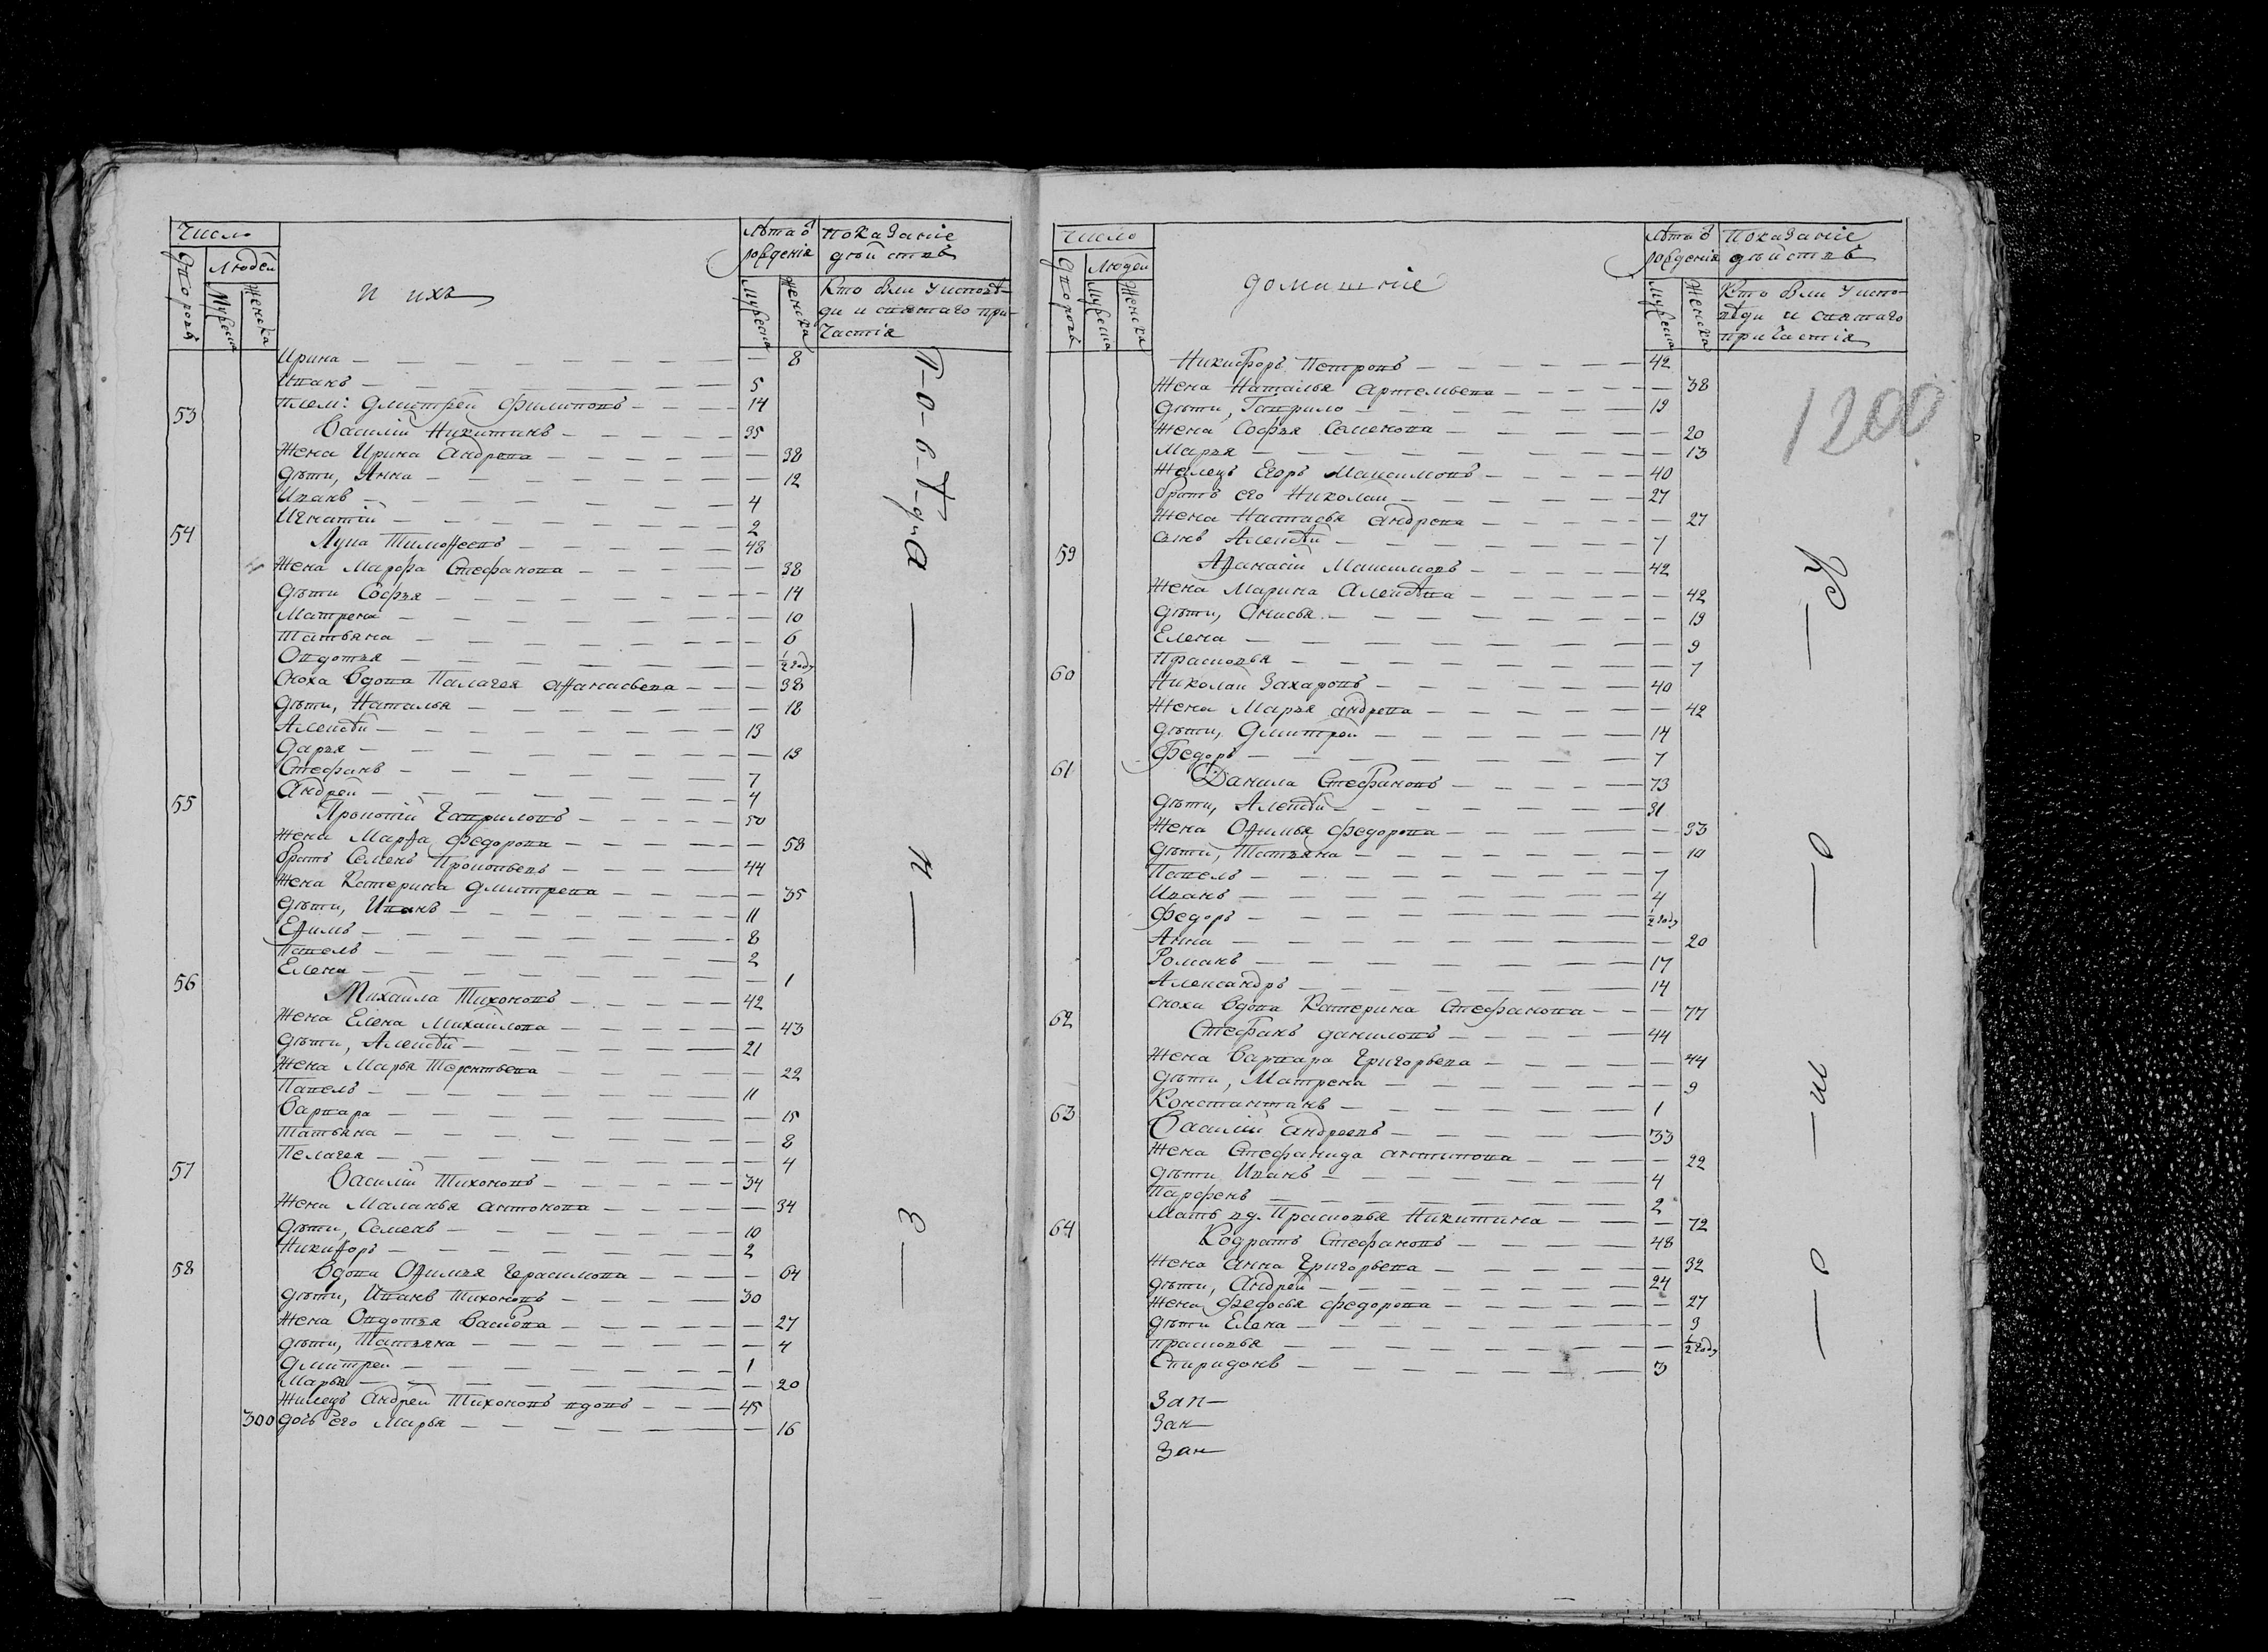 Число
Людей
Дворовъ
Мужеска
Женска
и ихъ
Лѣта ѿ
рожденія
Мужеска
Женска
показаніе
дѣйствъ
Кто были у исповѣ-
ди и святаго при-
частія
Ирина — 8
Иванъ — 5
плем: Дмитрей Филиповъ — 14
53 Василій Никитинъ — 35
Жена Ирина Андрева — 38
дѣти, Анна — 12
Иванъ — 4
Игнатій — 2
54 Лука Тимофеевъ — 48
Жена Марфа Стефанова — 38
дѣти Софья — 14
Матрена — 10
Татьяна — 6
Овдотья — 1/2 году
сноха вдова Палагея Афанасьева — 38
дѣти, Наталья — 18
Алексѣй — 13
Дарья — 13
Стефанъ — 7
Андрей — 4
55 Прокопій Гавриловъ — 50
Жена Марфа Федорова — 58
братъ Семенъ Прокопьевъ — 44
Жена Катерина Дмитрева — 35
дѣти, Иванъ — 11
Ефимъ — 8
Павелъ — 2
Елена — 1
56 Михайла Тихоновъ — 42
Жена Елена Михайлова — 43
дѣти, Алексѣй — 21
Жена Марья Терентьева — 22
Павелъ — 11
Варвара — 15
Татьяна — 8
Пелагея — 4
57 Василій Тихоновъ — 34
Жена Маланья Антонова — 34
дѣти, Семенъ — 10
Никифоръ — 2
58 Вдова Офимья Герасимова — 64
дѣти, Иванъ Тихоновъ — 30
Жена Овдотья Васильева — 27
дѣти, Татьяна — 4
Дмитрей — 1
Марья — 20
Жилецъ Андрей Тихоновъ вдовъ — 45
300 дочь его Марья — 16
Число
Людей
Дворовъ
Мужеска
Женска
домашніе
Лѣта ѿ
рожденія
Мужеска
Женска
Показаніе
дѣйствъ
Кто были у испо-
вѣди и святаго
причастія
1200
Никифоръ Петровъ — 42
Жена Наталья Артемьева — 38
дѣти, Гаврило — 19
Жена Софья Семенова — 20
Марья — 13
Жилецъ Егоръ Максимовъ — 40
братъ его Николай — 27
Жена Настасья Андрева — 27
сынъ Алексѣй — 7
59 Афанасій Максимовъ — 42
Жена Марина Алексѣева — 42
дѣти, Анисья — 19
Елена — 9
Прасковья — 7
60 Николай Захаровъ — 40
Жена Марья Андрева — 42
дѣти, Дмитрей — 14
Федоръ — 7
61 Данила Стефановъ — 73
дѣти, Алексѣй — 31
Жена Офимья Федорова — 33
дѣти, Татьяна — 10
Павелъ — 7
Иванъ — 4
Федоръ — 1/2 году
Анна — 20
Романъ — 17
Александръ — 14
сноха вдова Катерина Стефанова — 77
62 Стефанъ Даниловъ — 44
Жена Варвара Григорьева — 44
дѣти, Матрена — 9
Константинъ — 1
63 Василій Андреевъ — 33
Жена Стефанида Антипова — 22
дѣти Иванъ — 4
Парфенъ — 2
Мать вд. Прасковья Никитина — 72
64 Кодратъ Стефановъ — 48
Жена Анна Григорьева — 32
дѣти, Андрей — 24
Жена Федосья Федорова — 27
дѣти Елена — 3
Прасковья — 1/2 году
Спиридонъ — 3